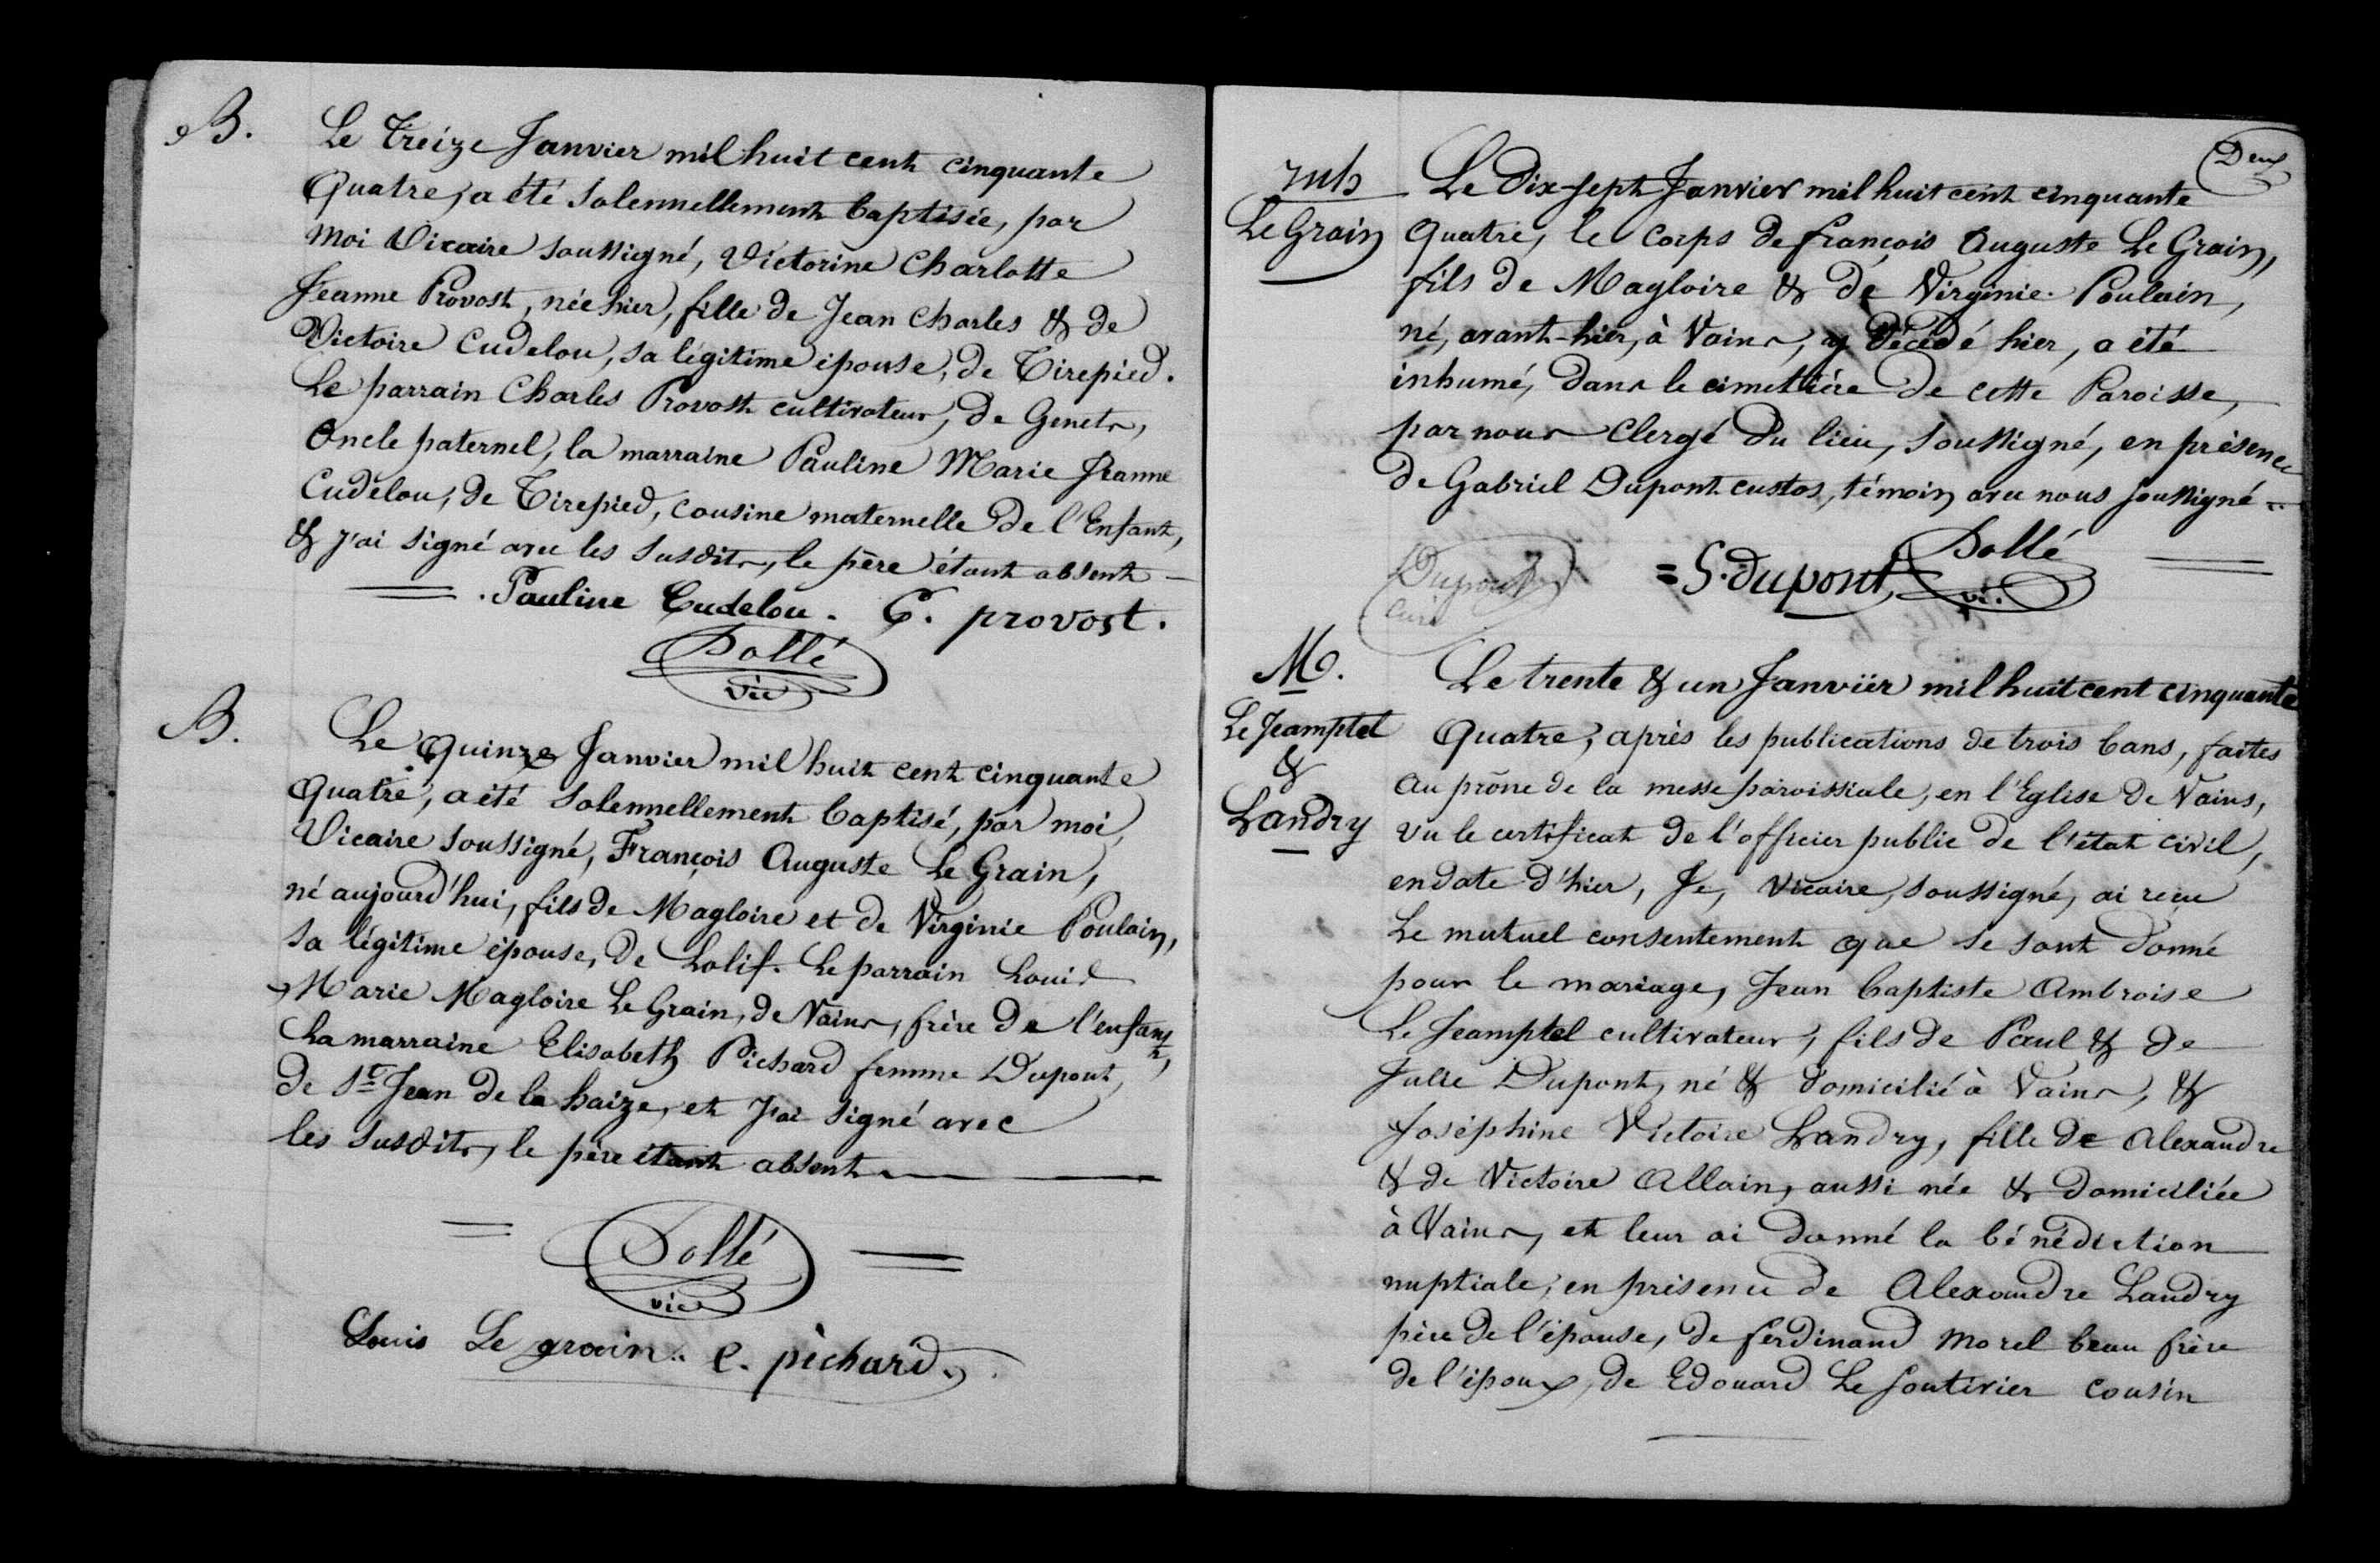 B.
Le treize Janvier mil huit cent cinquante
Quatre, a été solennellement baptisée, par
moi Vicaire soussigné, Victorine Charlotte
Jeanne Provost, née hier, fille de Jean Charles & de
Victoire Cudelou, sa légitime épouse, de Tirepied.
Le parrain Charles Provost cultivateur, de Genets,
Oncle paternel, la marraine Pauline Marie Jeanne
Cudelou, de Tirepied, cousine maternelle de l'Enfant,
& j'ai signé avec les susdits, le père étant absent —
Pauline Cudelou. C. provost.
Dollé
vic
B.
Le quinze Janvier mil huit cent cinquante
Quatre, a été solennellement baptisé, par moi,
Vicaire soussigné, François Auguste Le Grain,
né aujourd'hui, fils de Magloire et de Virginie Poulain,
sa légitime épouse, de Lolif. Le parrain Louis
Marie Magloire Le Grain, de Vains, frère de l'enfant,
La marraine Elisabeth Pichard femme Dupont,
de St Jean de la haize, et j'ai signé avec
les susdits, le père étant absent
Dollé
vic
Louis Le grain.. e. pichard.
Deux
inh
Le Grain
Le Dix-sept Janvier mil huit cent cinquante
Quatre, le corps de françois Auguste Le Grain,
fils de Magloire & de Virginie Poulain,
né, avant-hier, à Vains, y décédé hier, a été
inhumé, dans le cimetière de cette Paroisse,
par nous Clergé du lieu, soussigné, en présence
de Gabriel Dupont custos, témoin avec nous soussigné
Dupont
curé
= G. dupont
Dollé
vi.
M.
Le Jeamptel
&
Landry
Le trente & un Janvier mil huit cent cinquante
Quatre, après les publications de trois bans, faites
au prône de la messe paroissiale, en l'Eglise de Vains,
vu le certificat de l'officier public de l'état civil,
en date d'hier, Je, Vicaire, soussigné, ai reçu
Le mutuel consentement que se sont donné
pour le mariage, Jean baptiste Ambroise
Le Jeamptel cultivateur, fils de Paul & de
Julie Dupont, né & domicilié à Vains, &
Joséphine Victoire Landry, fille de Alexandre
& de Victoire Allain, aussi née & domiciliée
à Vains, et leur ai donné la bénédiction
nuptiale, en présence de Alexandre Landry
père de l'épouse, de ferdinand morel beau frère
de l'époux, de Edouard Le Soutivier cousin